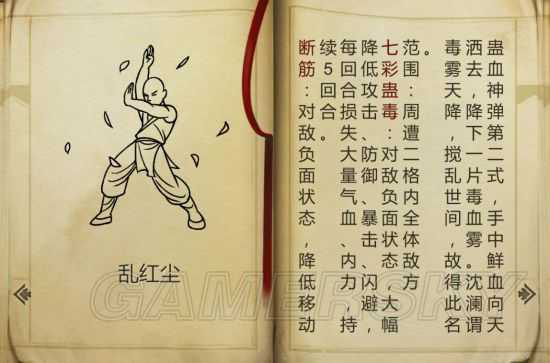 乱红尘
蛊血神弹第二式，手中鲜血向天
洒去，降下一片毒血雾。沈澜谓
毒雾天降，搅乱世间，故得此名
。
范围：周遭二格内全体敌方
七彩蛊毒：对敌负面状态，大幅
降低攻击、防御、暴击、闪避，
每回合损失大量气血、内力，持
续5回合。
断筋：对敌。负面状态，降低移动
GAMERSKY